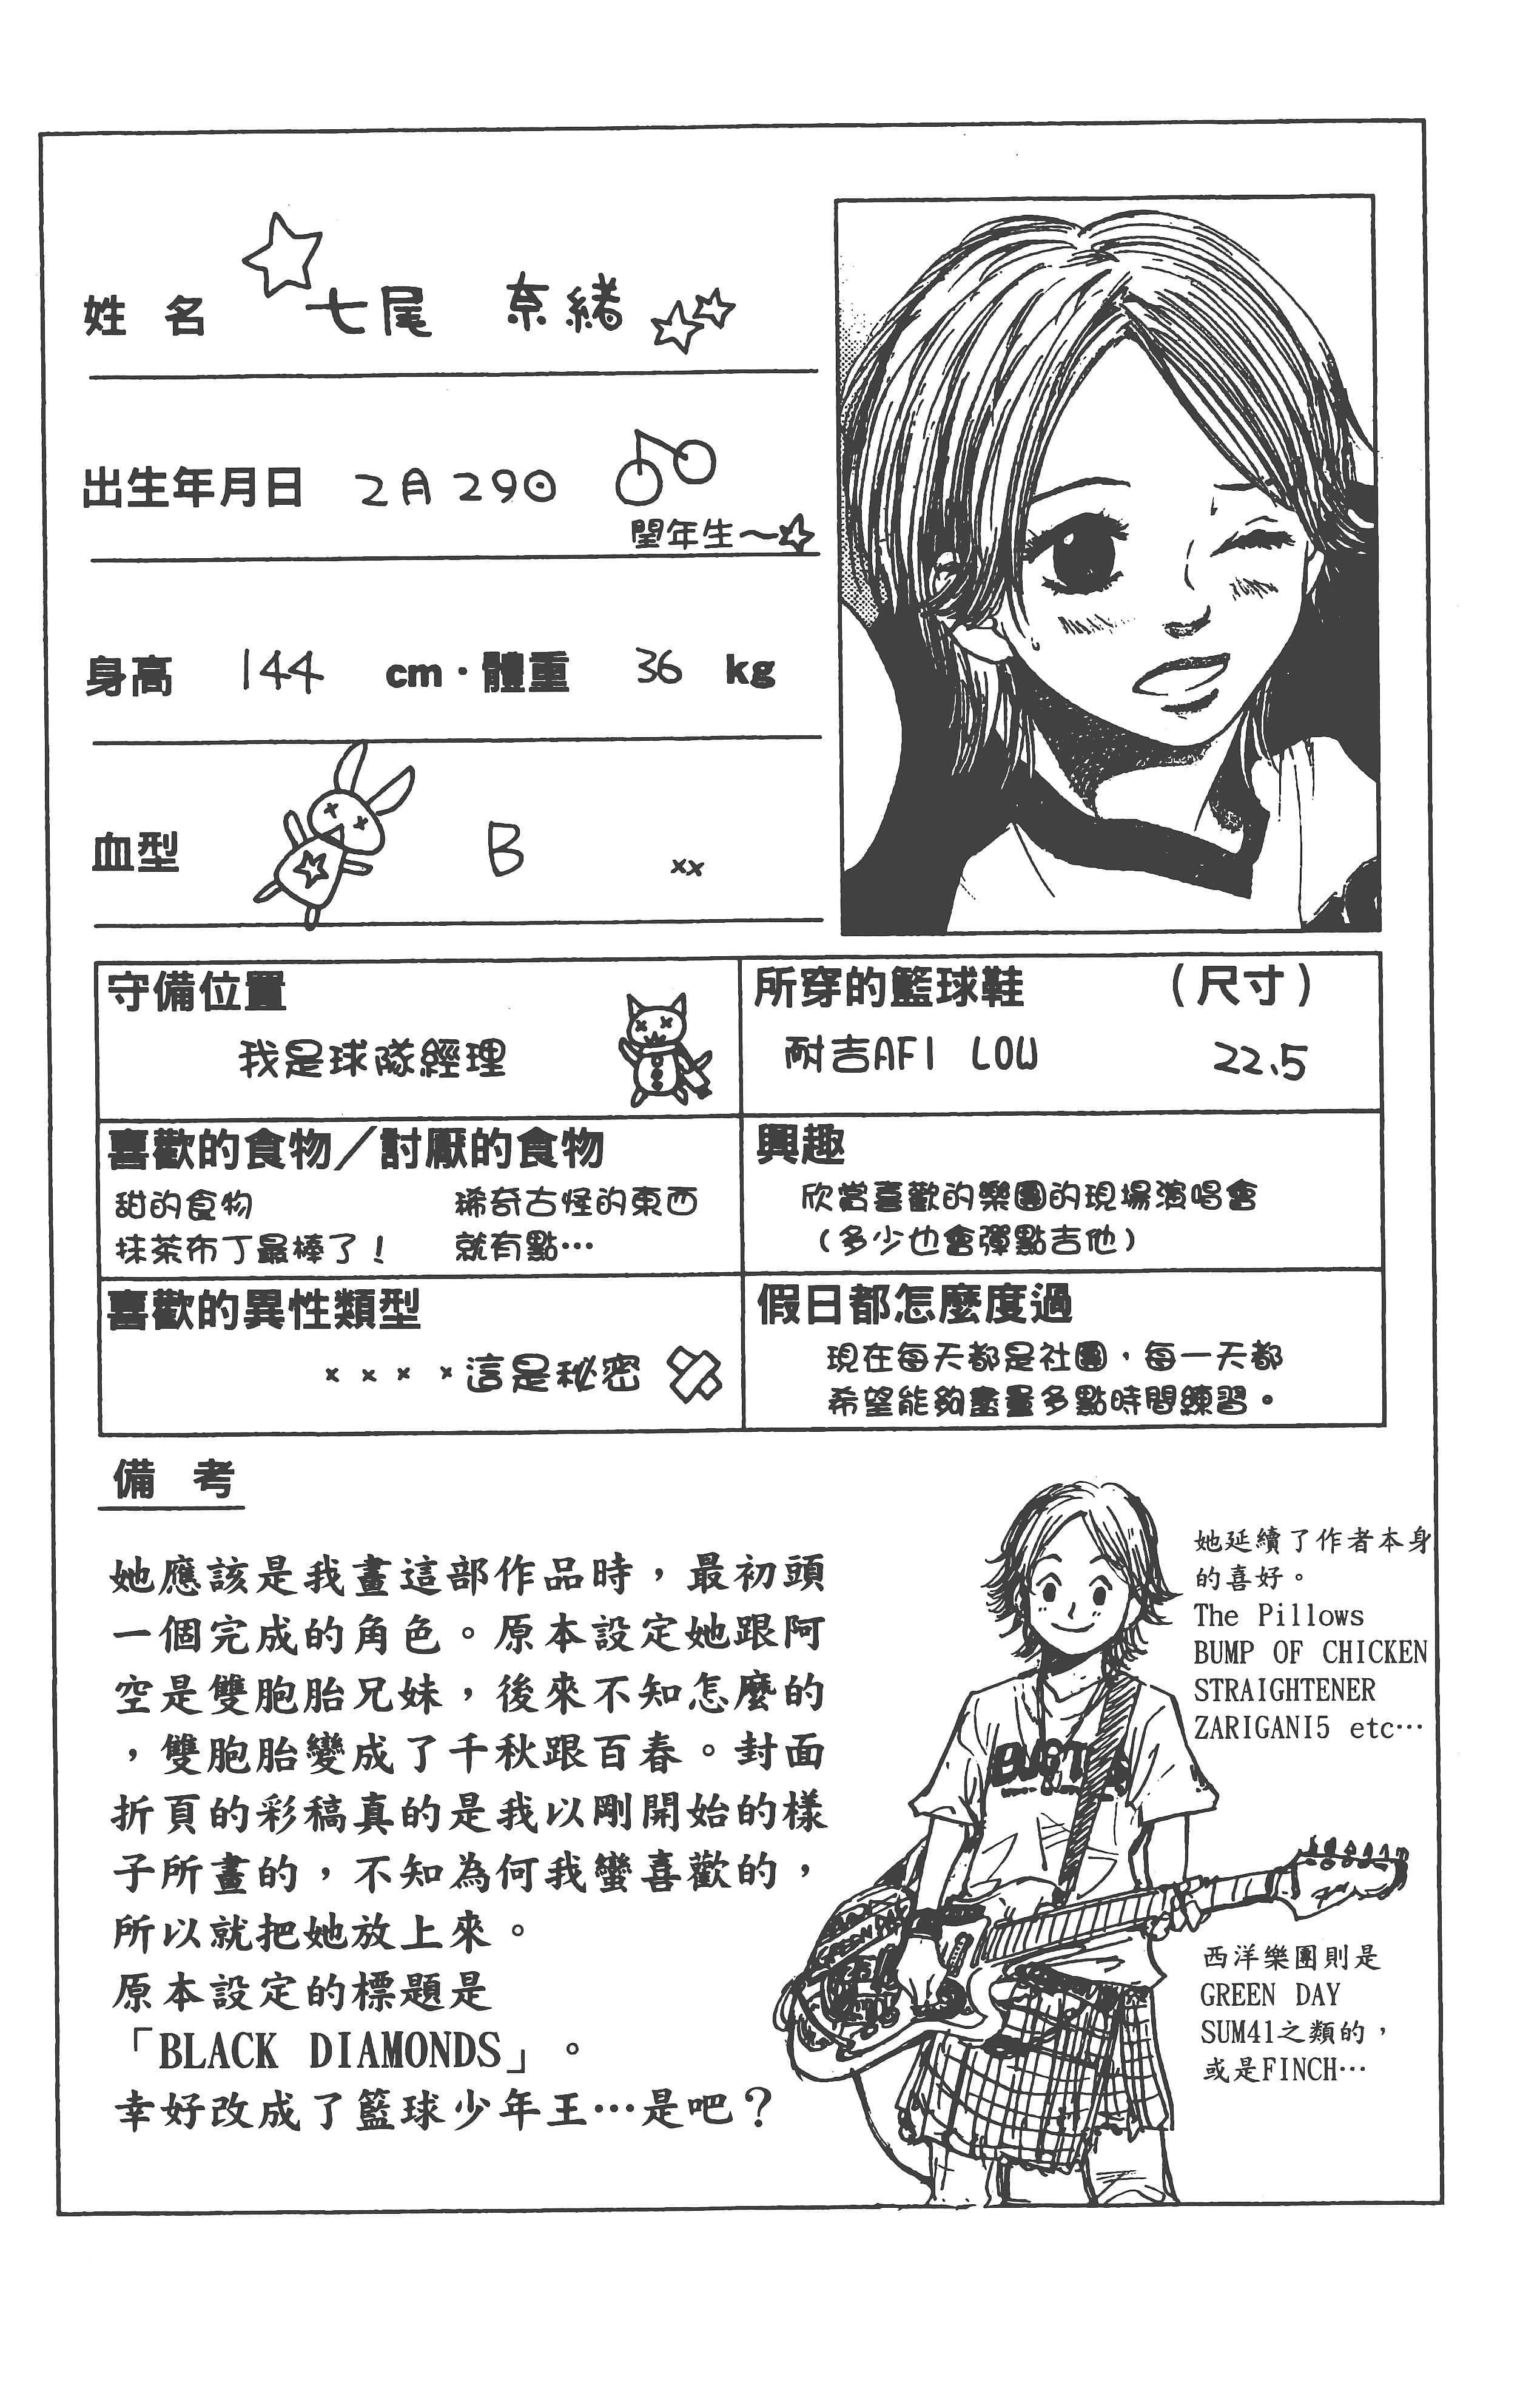 姓 名 七尾 奈緒
出生年月日 2月29日
閏年生～
身高 144 cm・體重 36 kg
血型 B ××
守備位置
我是球隊經理
所穿的籃球鞋 （尺寸）
耐吉AF1 LOW 22.5
喜歡的食物／討厭的食物
甜的食物 稀奇古怪的東西
抹茶布丁最棒了！ 就有點…
興趣
欣賞喜歡的樂團的現場演唱會
（多少也會彈點吉他）
喜歡的異性類型
××××這是秘密
假日都怎麼度過
現在每天都是社團，每一天都
希望能夠盡量多點時間練習。
備 考
她應該是我畫這部作品時，最初頭
一個完成的角色。原本設定她跟阿
空是雙胞胎兄妹，後來不知怎麼的
，雙胞胎變成了千秋跟百春。封面
折頁的彩稿真的是我以剛開始的樣
子所畫的，不知為何我蠻喜歡的，
所以就把她放上來。
原本設定的標題是
「BLACK DIAMONDS」。
幸好改成了籃球少年王…是吧？
她延續了作者本身
的喜好。
The Pillows
BUMP OF CHICKEN
STRAIGHTENER
ZARIGANI5 etc…
西洋樂團則是
GREEN DAY
SUM41之類的，
或是FINCH…